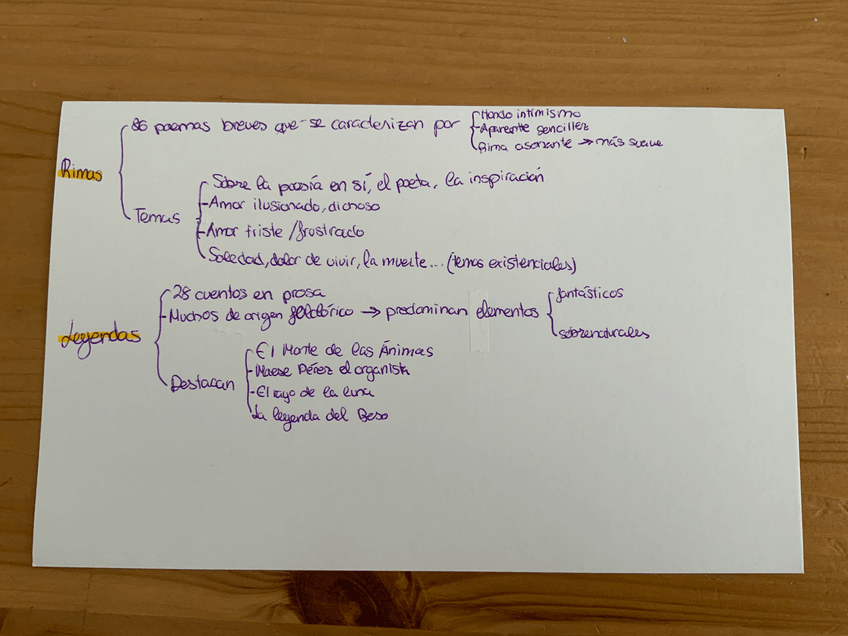 Rimas
86 poemas breves que se caracterizan por
Hondo intimismo
Aparente sencillez
Rima asonante → más suave
Temas
Sobre la poesía en sí, el poeta, la inspiración
Amor ilusionado, dichoso
Amor triste/frustrado
Soledad, dolor de vivir, la muerte... (temas existenciales)
Leyendas
28 cuentos en prosa
Muchos de origen → predominan elementos
fantásticos
sobrenaturales
Destacan
El Monte de las Ánimas
Maese Pérez el organista
El rayo de la luna
La leyenda del Beso